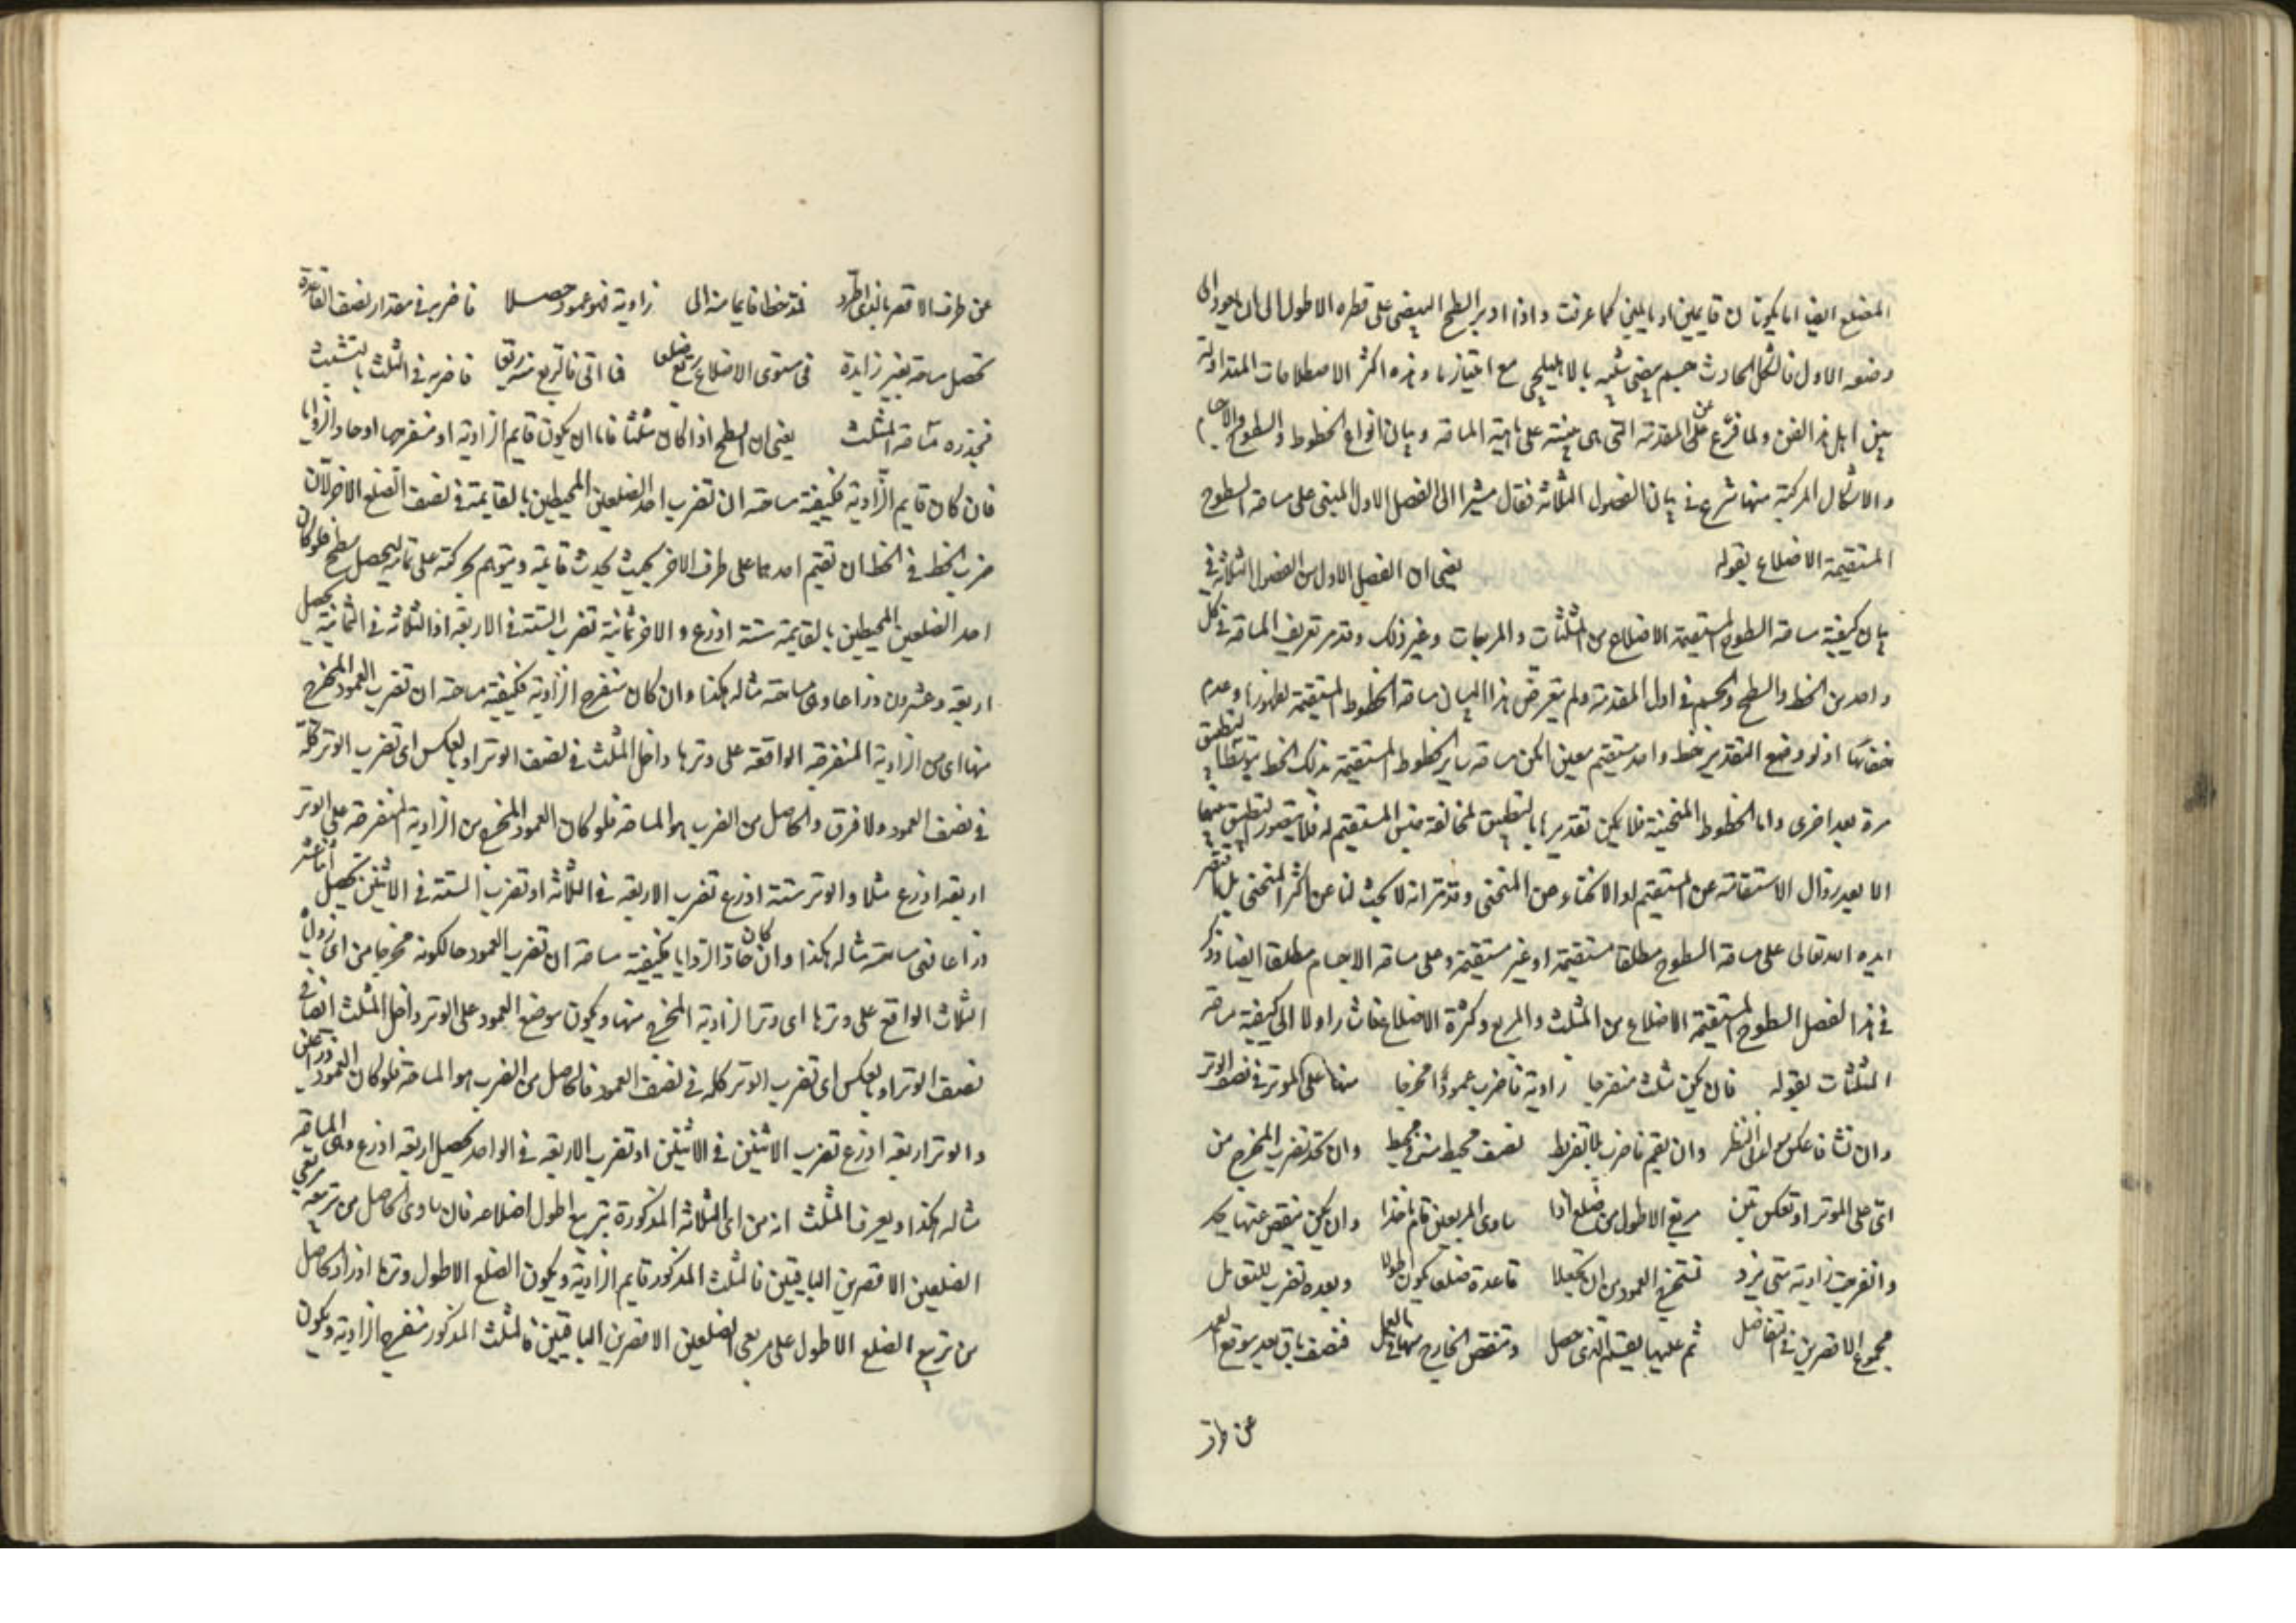 المضلع ايضا اما يكونان قايمين او مايلين كما عرفت واذا ادير السطح البيضى على قطره الاطول الى ان يعود الى
وضعه الاول فالشكل الحادث جسم بيضى شبيه بالاهليلجى مع امتيازها وهذه اكثر الاصطلاحات المتداولة
بين اهل هذا الفن ولما فرغ عن المقدمة التى هى مبنية على ماهية المساحة وبيان انواع الخطوط والسطوح والاجسام
والاشكال المركبة منها شرع فى بيان الفصول الثلاثة فقال مشيرا الى الفصل الاول المبنى على مساحة السطوح
المستقيمة الاضلاع بقوله يعنى ان الفصل الاول من الفصول الثلاثة فى
بيان كيفية مساحة السطوح المستقيمة الاضلاع من المثلثات والمربعات وغير ذلك وقد مر تعريف المساحة فى كل
واحد من الخط والسطح والجسم فى اول المقدمة ولم يتعرض هذا البيان مساحة الخطوط المستقيمة لظهورها وعدم
خفائها اذ لو وضع التقدير خط واحد مستقيم معين امكن مساحة ساير الخطوط المستقيمة بذلك الخط بتطبيق
مرة بعد اخرى واما الخطوط المنحنية فلا يمكن تقديرها بالتطبيق لمخالفة جنس المستقيم له فلا يتصور التطبيق بينهما
الا بعد زوال الاستقامة عن المستقيم او الانحناء عن المنحنى وقد مر انه لا بحث لنا عن اكثر المنحنى بل اقتصر
ايده الله تعالى على مساحة السطوح مطلقا مستقيمة او غير مستقيمة وعلى مساحة الاجسام مطلقا ايضا وذكر
فى هذا الفصل السطوح المستقيمة الاضلاع من المثلث والمربع وكثيرة الاضلاع فاشار اولا الى كيفية مساحة
المثلثات بقوله فان يكن مثلث منفرجا زاوية فاضرب عمودا مخرجا منها على الموتر فى نصف الوتر
وان تشا فاعكس النظر وان يقم فاضرب بلا تفريط نصف محيط فى محيط وان تحد تضرب المخرج من
اى على الموتر او تعكس مربع الاطول من ضلع اذا ساوى المربعين قايم خذا وان يكن ينقص عنها يحد
وانفرجت زاوية متى يزد نستخرج العمود من ان تجعلا قاعدة ضلعا يكون اطولا وبعده تضرب للتقابل
مجموع الاقصرين فى التفاضل ثم عليها يقسم الذى حصل وتنقص الخارج منها فنصف باق بعد موقع العمد
عن طرف
عن طرف الاقصر فمد خطا قايما منه الى زاوية فهو عمود حصلا فاضربه فى مقدار نصف القاعدة
تحصل مساحة بغير زايدة فى مستوى الاضلاع ربع ضلعا فاضربه فى الثلث بالتثليث
فجذره مساحة المثلث يعنى ان السطح اذا كان مثلثا فاما ان يكون قايم الزاوية او منفرجها او حاد الزوايا
فان كان قايم الزاوية فكيفية مساحته ان تضرب احد الضلعين المحيطين بالقايمة فى نصف الضلع الاخر لان
ضرب الخط فى الخط ان تقيم احدهما على طرف الاخر بحيث يحدث قايمة ويتوهم حركته على تمامه ليحصل سطح فلو كان
احد الضلعين المحيطين بالقايمة ستة اذرع والاخر ثمانية تضرب الستة فى الاربعة او الثلاثة فى الثمانية يحصل
اربعة وعشرون ذراعا وهى مساحته مثاله هكذا وان كان منفرج الزاوية فكيفية مساحته ان تضرب العمود المخرج
منها اى من الزاوية المنفرجة الواقعة على وترها داخل المثلث فى نصف الوتر او بالعكس اى تضرب الوتر كله
فى نصف العمود ولا فرق والحاصل من الضرب هو المساحة فلو كان العمود المخرج من الزاوية المنفرجة على الوتر
اربعة اذرع مثلا والوتر ستة اذرع تضرب الاربعة فى الثلاثة او تضرب الستة فى الاثنين تحصل اثنا عشر
ذراعا فهى مساحته مثاله هكذا وان كان حاد الزوايا فكيفية مساحته ان تضرب العمود حال كونه مخرجا من اى زواياه
الثلاث الواقع على وترها اى وتر الزاوية المخرج منها ويكون موضع العمود على الوتر داخل المثلث ايضا فى
نصف الوتر او بالعكس اى تضرب الوتر كله فى نصف العمود فالحاصل من الضرب هو المساحة فلو كان العمود ذراعين
والوتر اربعة اذرع تضرب الاثنين فى الاثنين او تضرب الاربعة فى الواحد تحصل اربعة اذرع وهى المساحة
مثاله هكذا ويعرف المثلث انه من اى الثلاثة المذكورة بتربيع اطول اضلاعه فان ساوى الحاصل من تربيعه مربعى
الضلعين الاقصرين الباقيين فالمثلث المذكور قايم الزاوية ويكون الضلع الاطول وترها او زاد الحاصل
من تربيع الضلع الاطول على مربعى الضلعين الاقصرين الباقيين فالمثلث المذكور منفرج الزاوية ويكون